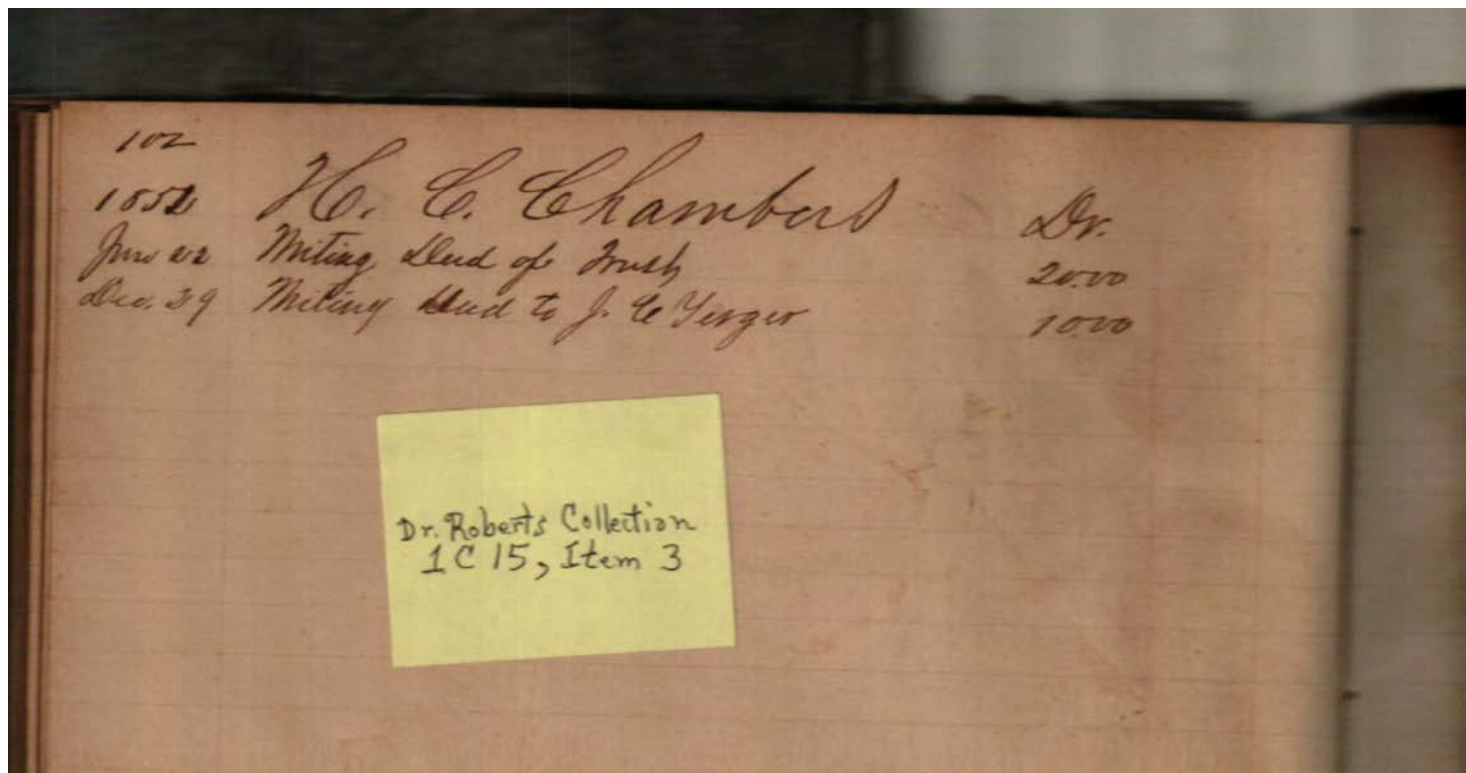 102
1852 H. C. Chambers Dr.
22 Writing Deed of Trust 20.00
Dec. 29 Writing Deed to J. Yerger 10.00
Dr. Roberts Collection
1 C 15, Item 3